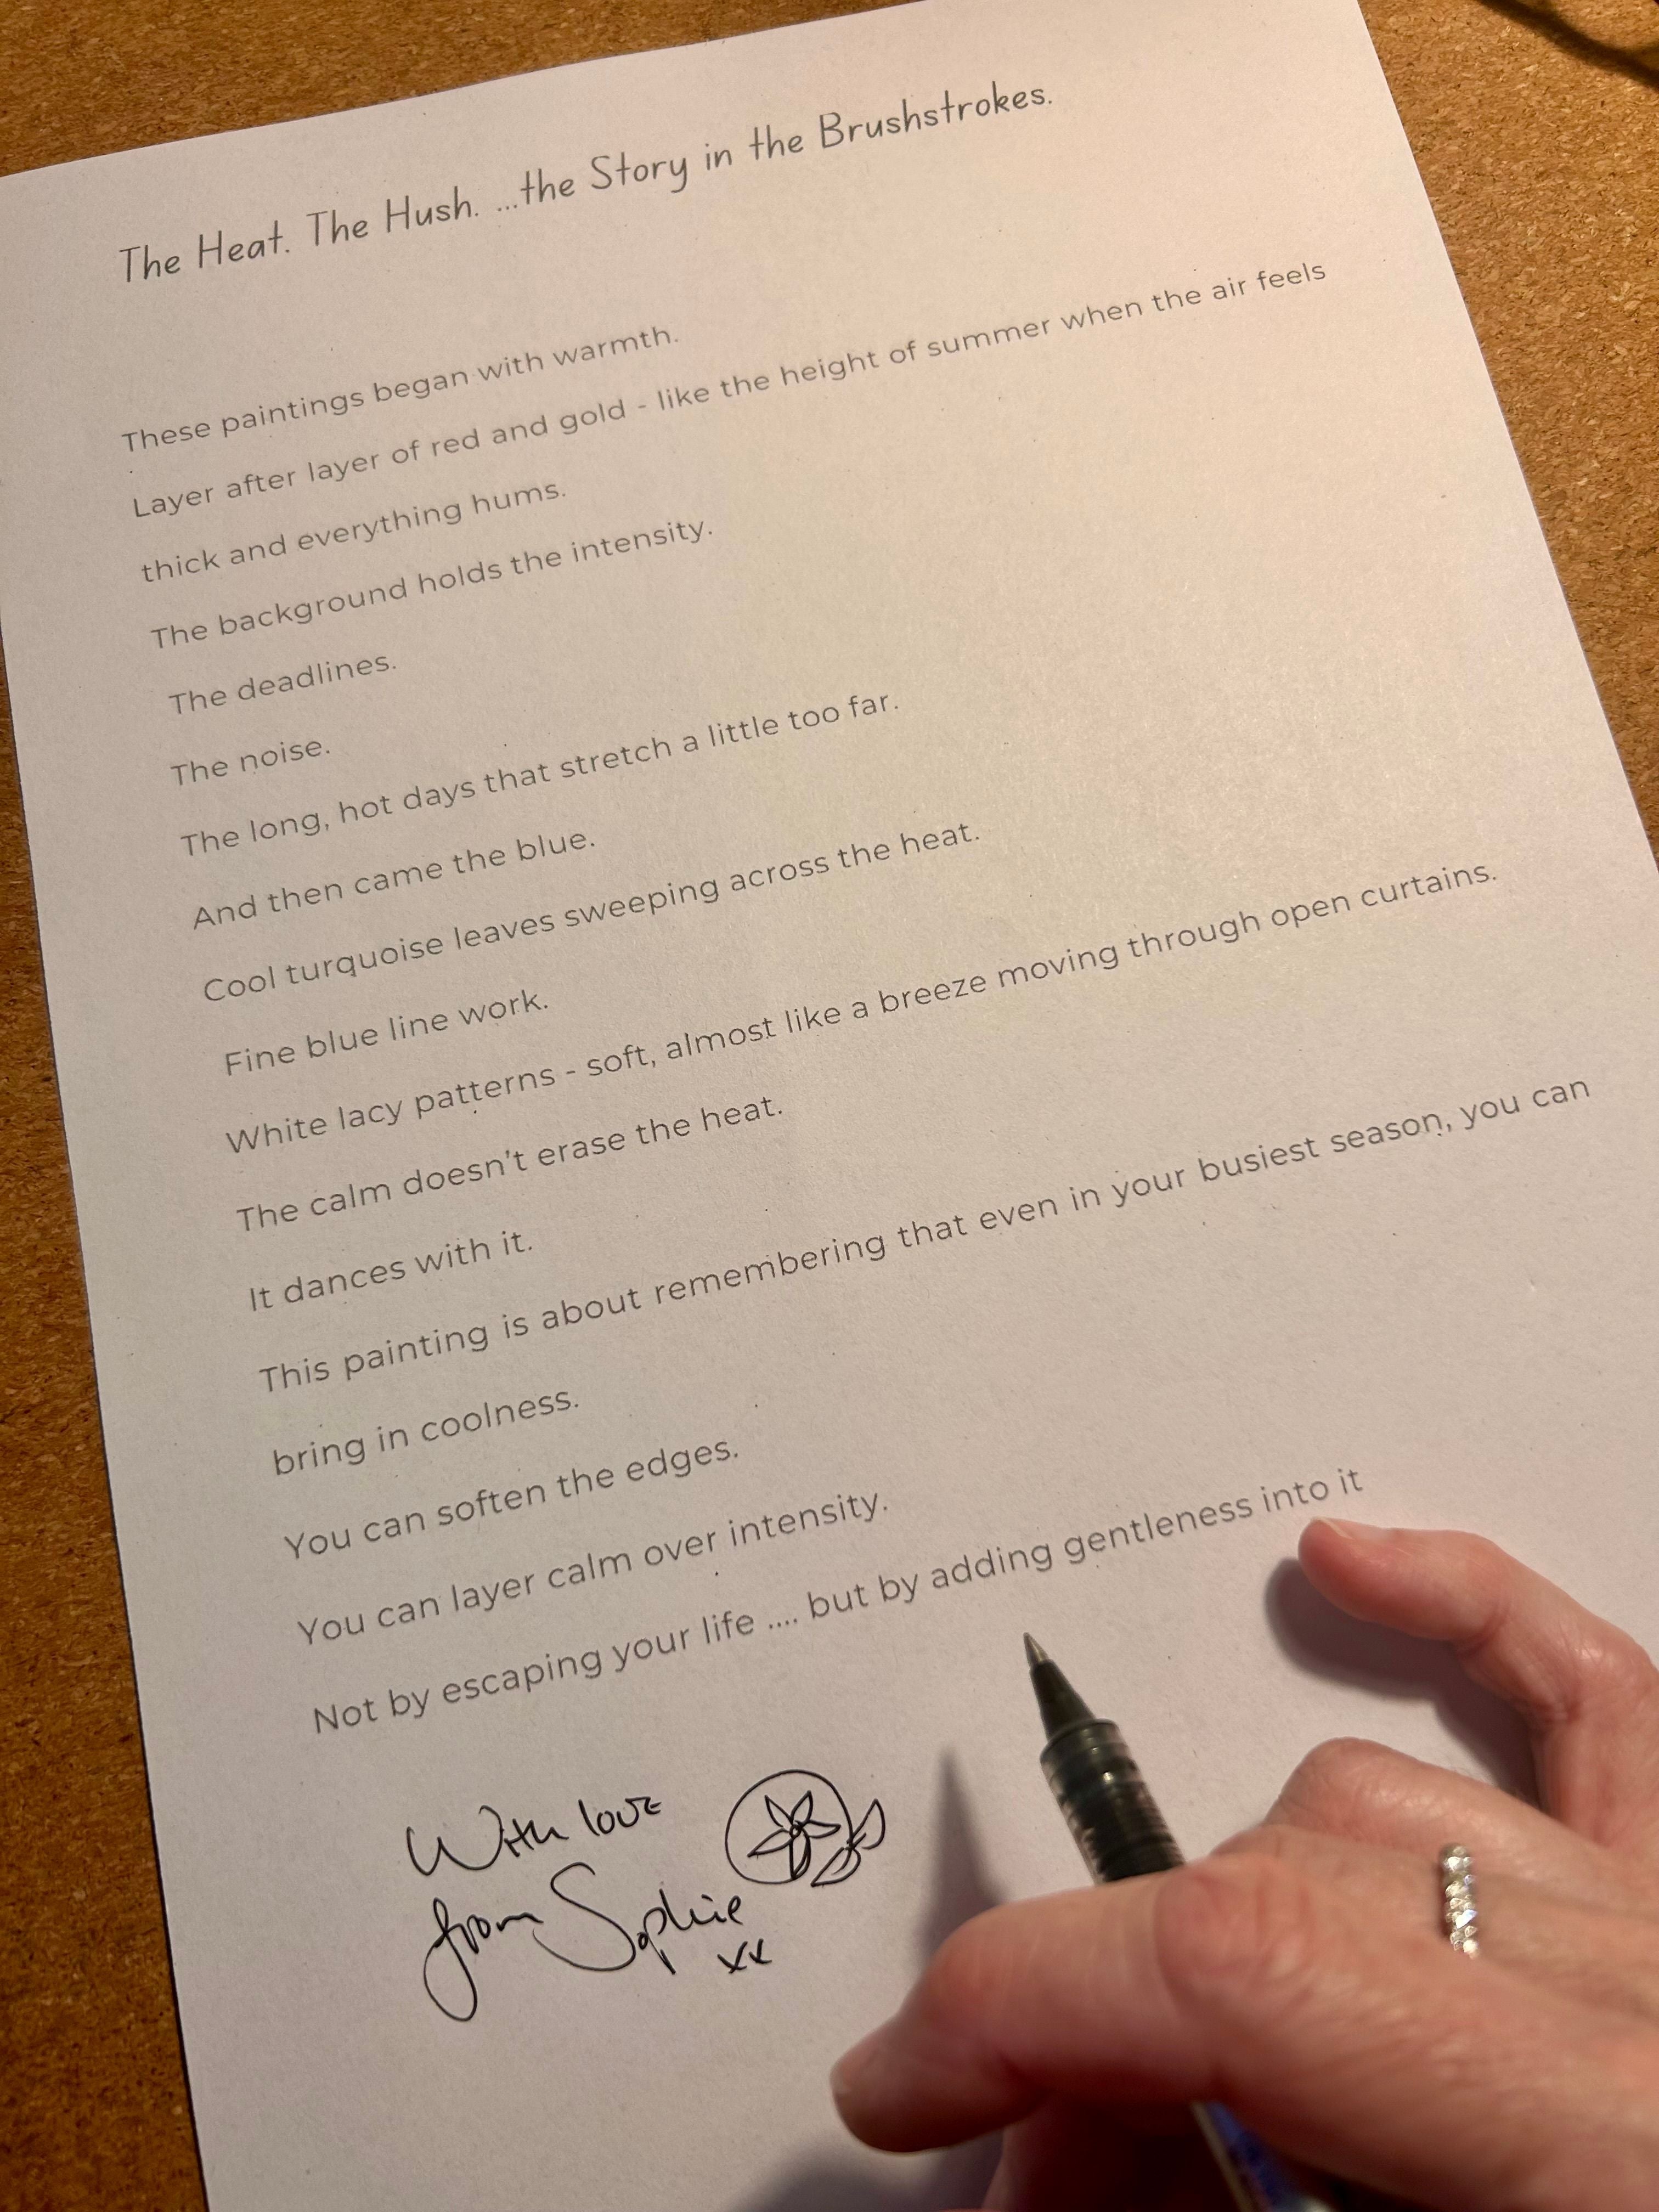 The Heat. The Hush. ...the Story in the Brushstrokes.
These paintings began with warmth.
Layer after layer of red and gold - like the height of summer when the air feels
thick and everything hums.
The background holds the intensity.
The deadlines.
The noise.
The long, hot days that stretch a little too far.
And then came the blue.
Cool turquoise leaves sweeping across the heat.
Fine blue line work.
White lacy patterns - soft, almost like a breeze moving through open curtains.
The calm doesn't erase the heat.
It dances with it.
This painting is about remembering that even in your busiest season, you can
bring in coolness.
You can soften the edges.
You can layer calm over intensity.
Not by escaping your life .... but by adding gentleness into it
With love
from Sophie
xx